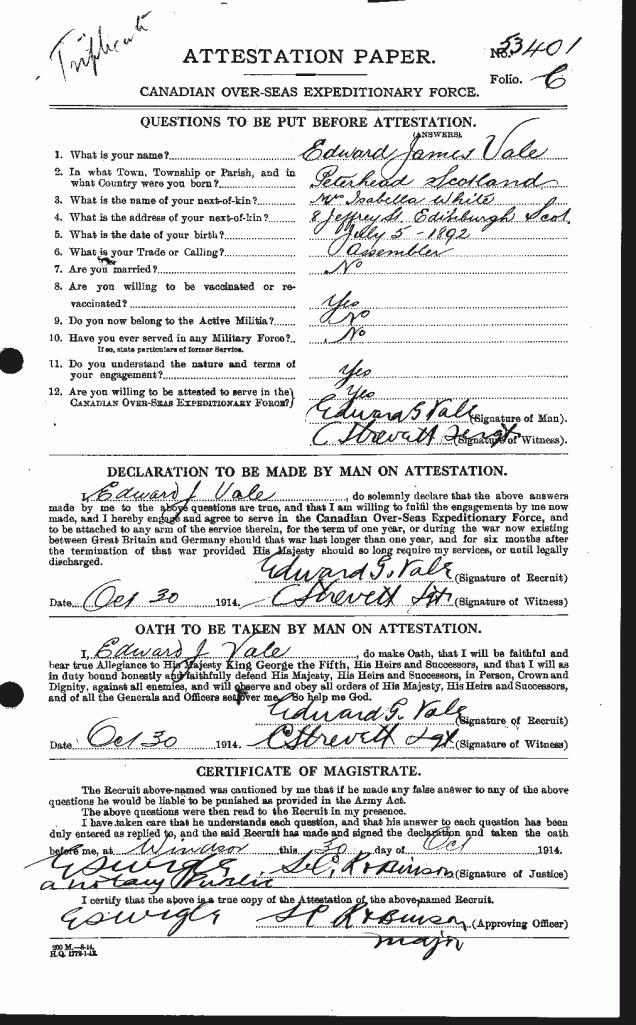 Triplicate
ATTESTATION PAPER.
No. 53401
Folio. C
CANADIAN OVER-SEAS EXPEDITIONARY FORCE.
QUESTIONS TO BE PUT BEFORE ATTESTATION.
(ANSWERS).
1. What is your name? Edward James Vale
2. In what Town, Township or Parish, and in
what Country were you born? Peterhead Scotland
3. What is the name of your next-of-kin? Mrs Isabella White
4. What is the address of your next-of-kin? 8 Jeffrey St. Edinburgh Scot.
5. What is the date of your birth? July 5 - 1892
6. What is your Trade or Calling? Assembler
7. Are you married? No
8. Are you willing to be vaccinated or re-
vaccinated? Yes
9. Do you now belong to the Active Militia? No
10. Have you ever served in any Military Force? No
If so, state particulars of former Service.
11. Do you understand the nature and terms of
your engagement? Yes
12. Are you willing to be attested to serve in the
CANADIAN OVER-SEAS EXPEDITIONARY FORCE? Yes
Edward J Vale (Signature of Man).
C Strevett Sergt (Signature of Witness).
DECLARATION TO BE MADE BY MAN ON ATTESTATION.
I, Edward J Vale, do solemnly declare that the above answers
made by me to the above questions are true, and that I am willing to fulfil the engagements by me now
made, and I hereby engage and agree to serve in the Canadian Over-Seas Expeditionary Force, and
to be attached to any arm of the service therein, for the term of one year, or during the war now existing
between Great Britain and Germany should that war last longer than one year, and for six months after
the termination of that war provided His Majesty should so long require my services, or until legally
discharged.
Edward J. Vale (Signature of Recruit)
Date Oct 30 1914. C Strevett Sgt. (Signature of Witness)
OATH TO BE TAKEN BY MAN ON ATTESTATION.
I, Edward J Vale, do make Oath, that I will be faithful and
bear true Allegiance to His Majesty King George the Fifth, His Heirs and Successors, and that I will as
in duty bound honestly and faithfully defend His Majesty, His Heirs and Successors, in Person, Crown and
Dignity, against all enemies, and will observe and obey all orders of His Majesty, His Heirs and Successors,
and of all the Generals and Officers set over me. So help me God.
Edward J. Vale (Signature of Recruit)
Date Oct 30 1914. C Strevett Sgt (Signature of Witness)
CERTIFICATE OF MAGISTRATE.
The Recruit above-named was cautioned by me that if he made any false answer to any of the above
questions he would be liable to be punished as provided in the Army Act.
The above questions were then read to the Recruit in my presence.
I have taken care that he understands each question, and that his answer to each question has been
duly entered as replied to, and the said Recruit has made and signed the declaration and taken the oath
before me, at Windsor this 30 day of Oct 1914.
E S Wigle S. C. Robinson (Signature of Justice)
a notary Public
I certify that the above is a true copy of the Attestation of the above-named Recruit.
E S Wigle S C Robinson (Approving Officer)
major
200 M.—8-14.
H.Q. 1772-1-13.